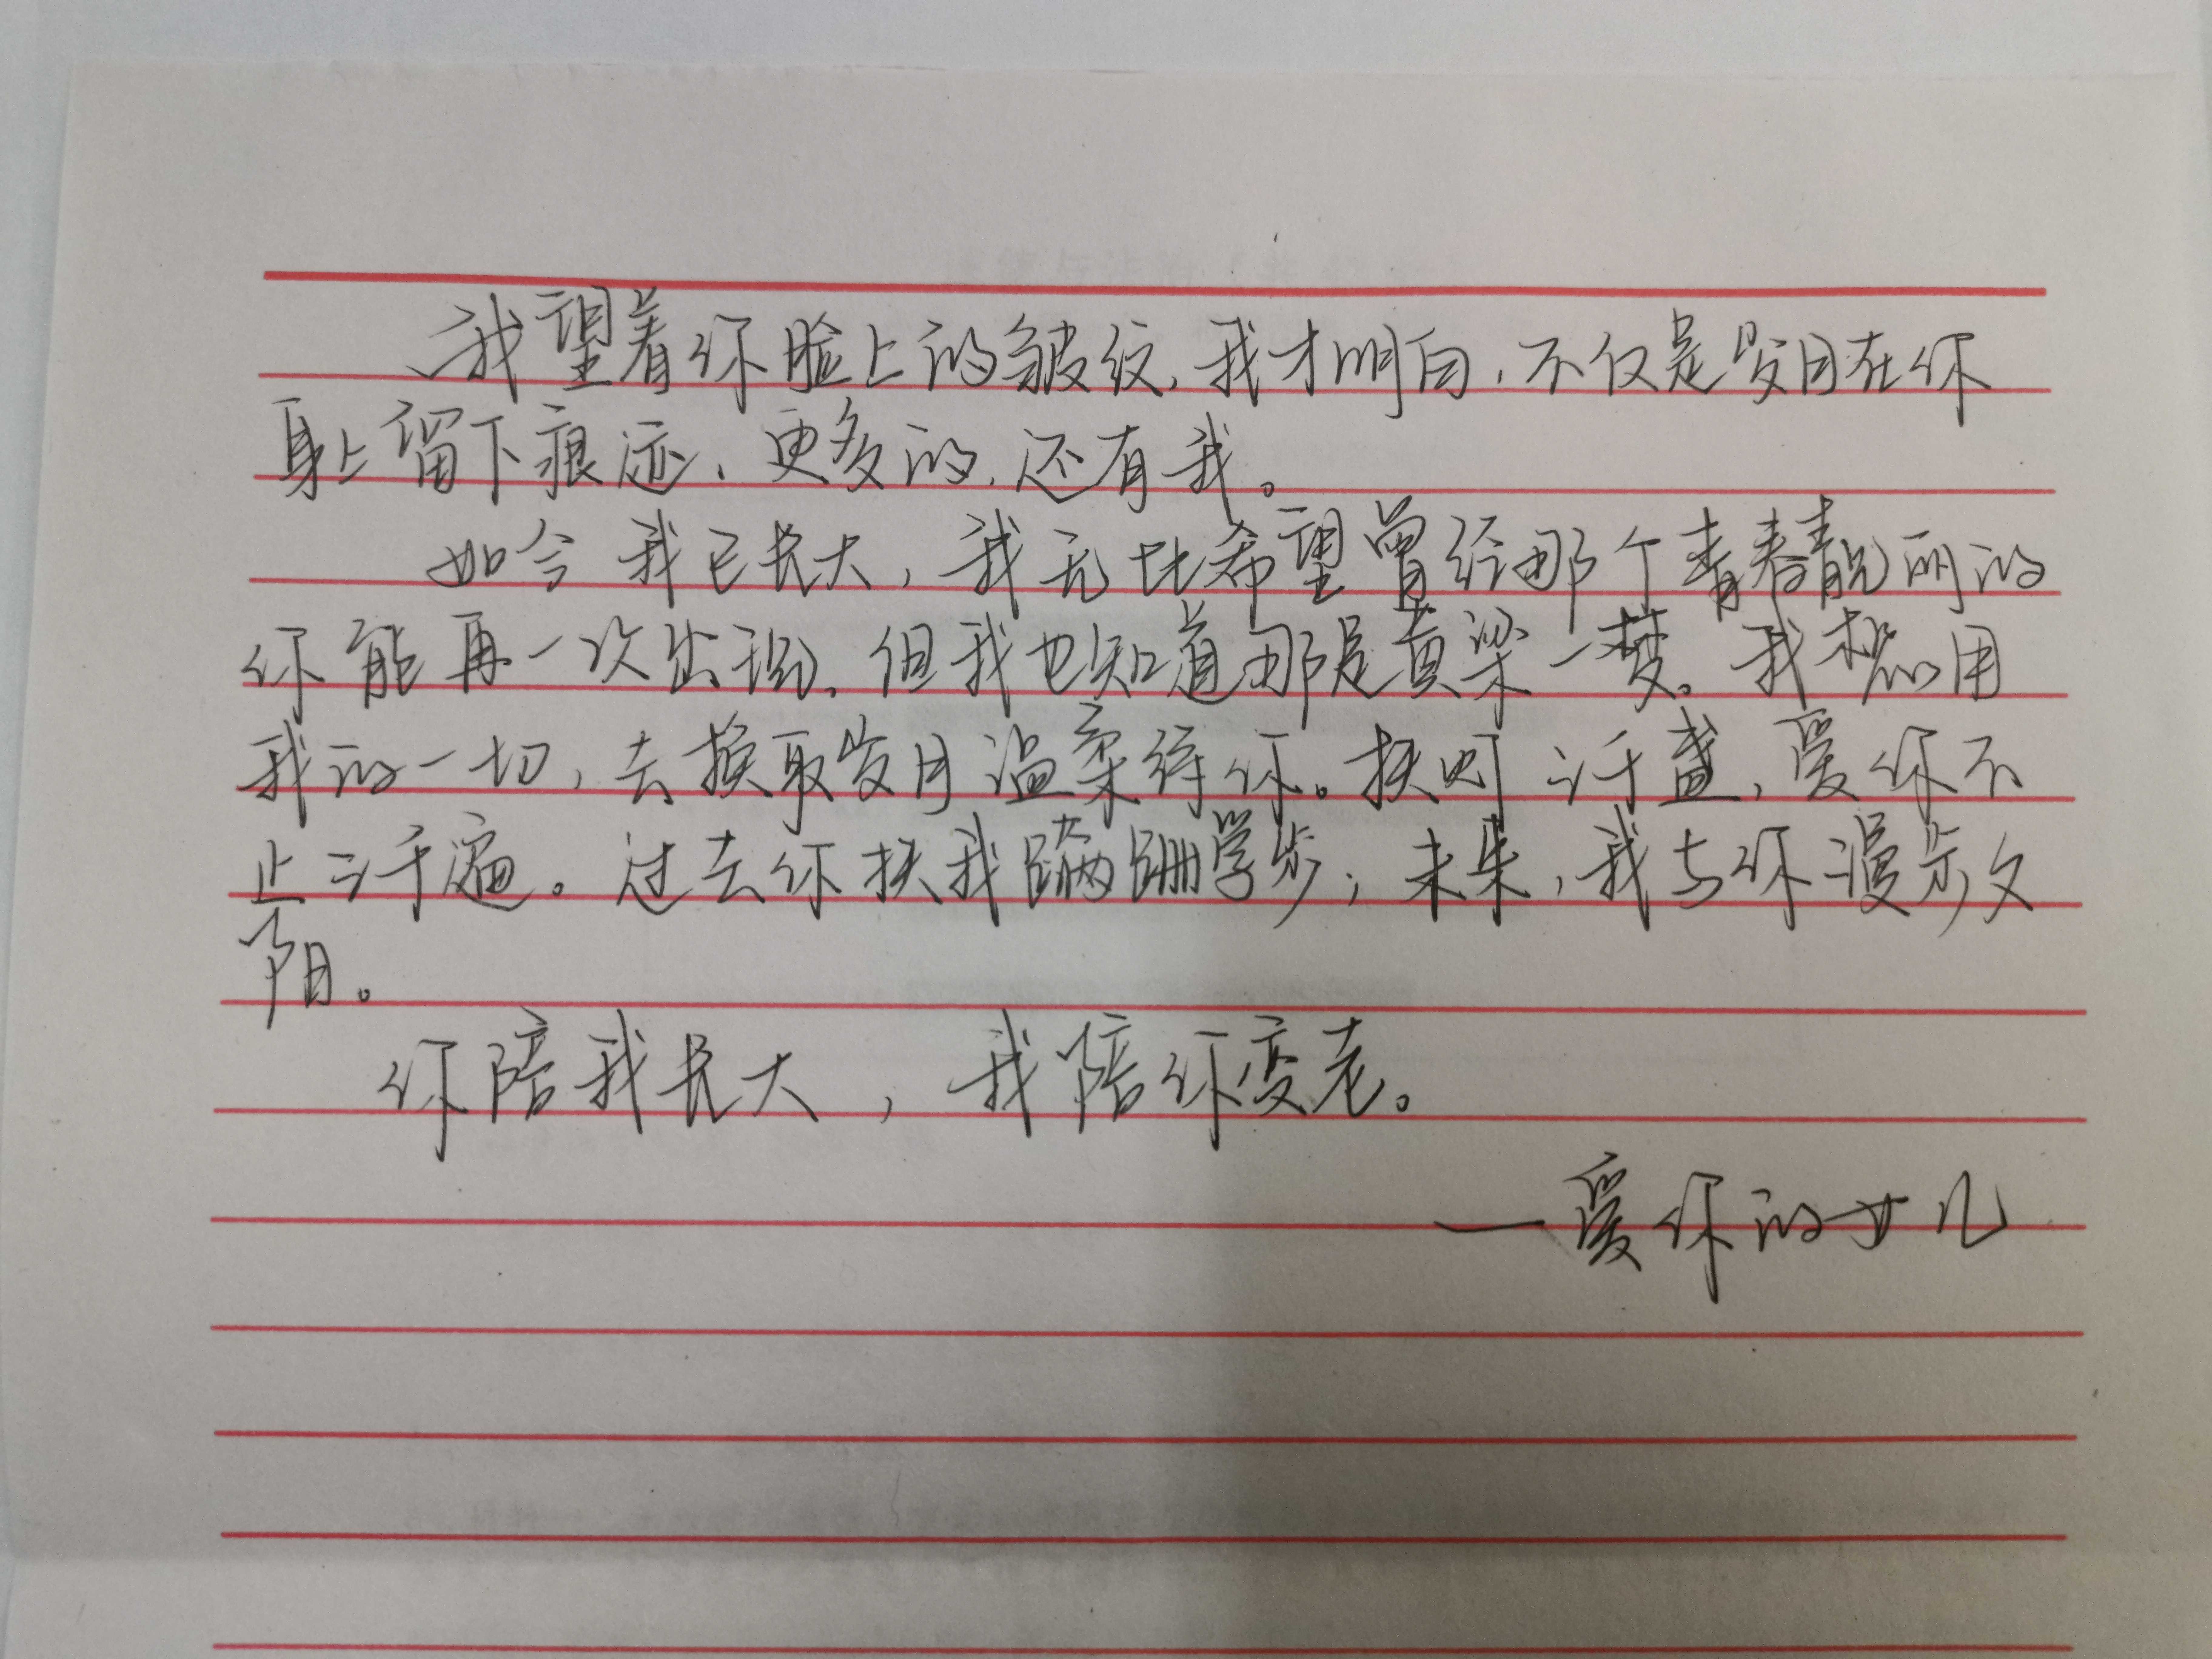 我望着你脸上的皱纹,我才明白,不仅是岁月在你
身上留下痕迹,更多的,还有我。
如今我已长大,我无比希望曾经那个青春靓丽的
你能再一次出现,但我也知道那是黄粱一梦。我想用
我的一切,去换取岁月温柔待你。扶町三千盏,爱你不
止三千遍。过去你扶我蹒跚学步;未来,我与你漫步夕
阳。
你陪我长大,我陪你变老。
—爱你的女儿